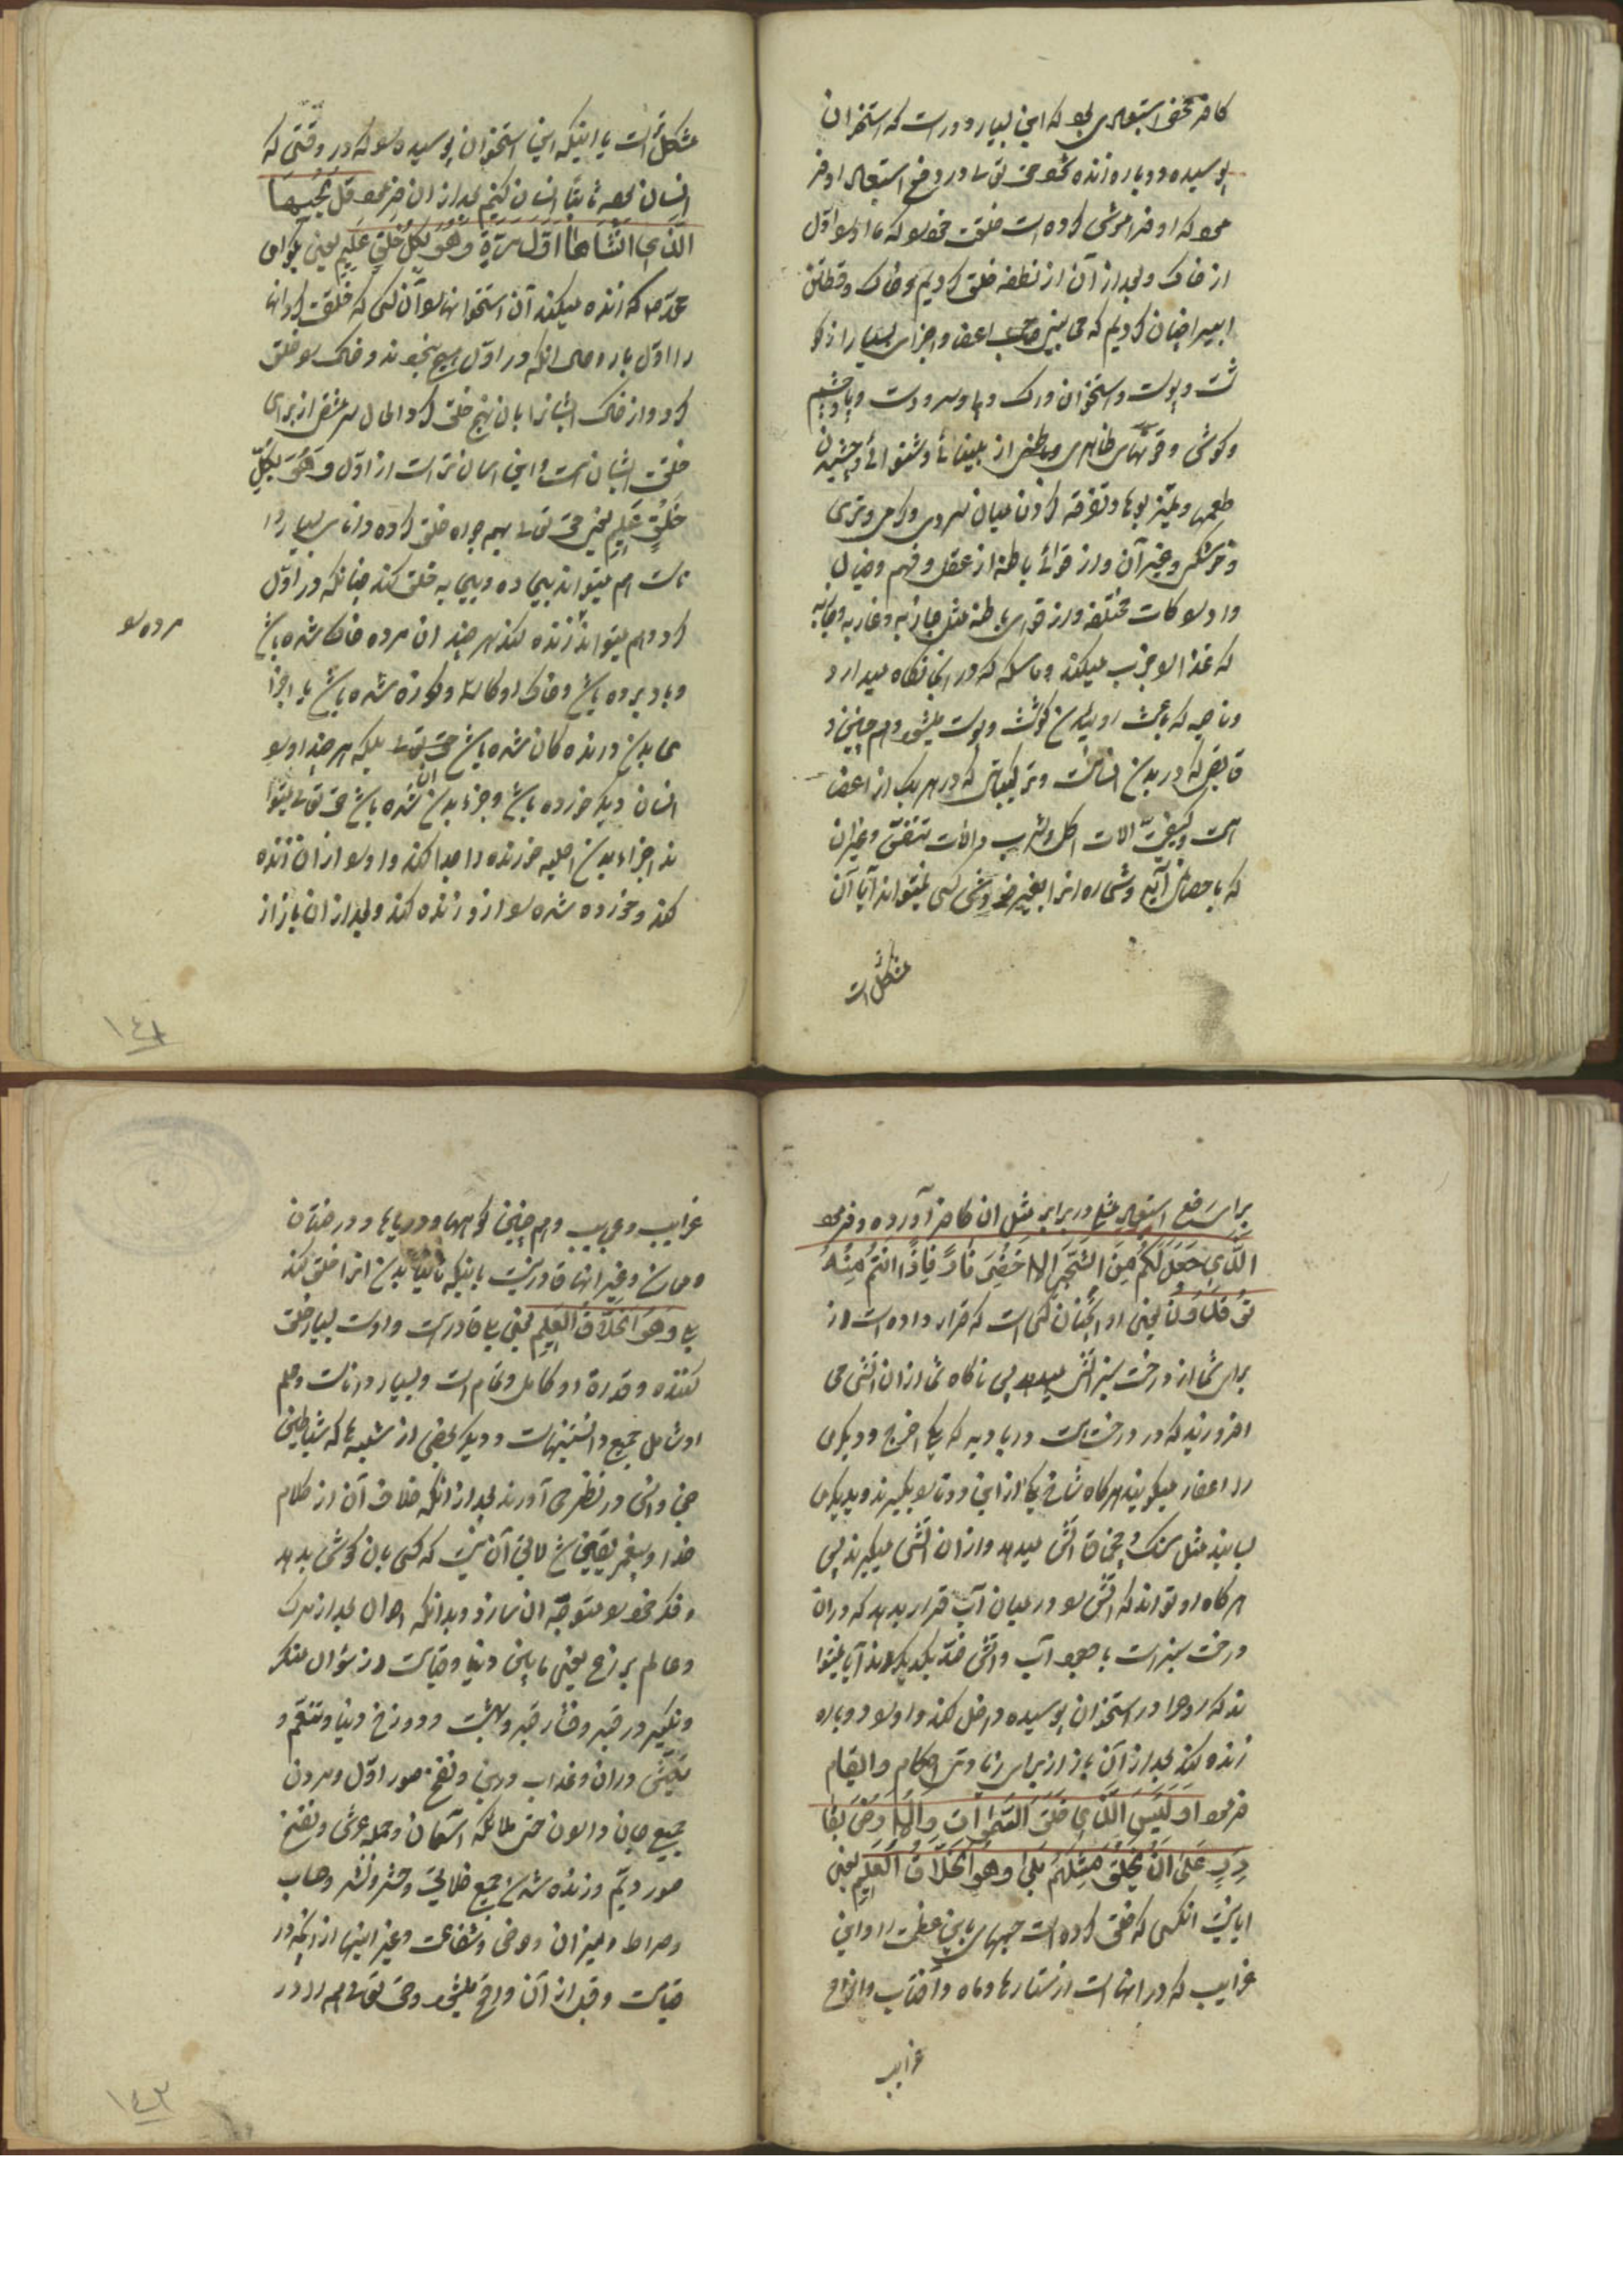 کافر محض استبعادی بود که این بسیار دور است که استخوان
پوسیده دوباره زنده شود حق تعالی در دفع استبعاد او فر
مود که او فراموش کرده است خلقت خود را که ما او را اول
از خاک و بعد از آن از نطفه خلق کردیم و خاک و نطفه
را چنان کردیم که می بینی صاحب اعضا و اجزای بسیار از گو
شت و پوست و استخوان و رگ و پا و سر و دست و چشم
و گوش و قوتهای ظاهری و باطنی از بینائی و شنوائی و چشیدن
طعمها و تمیز بوها و تفرقه کردن میان سردی و گرمی و تری
و خشکی و غیر آن و از قوای باطنه از عقل و فهم و خیال
و ادراکات مختلفه و از قوای باطنه مثل جاذبه و غاذیه
که غذا را جذب میکند و ماسکه که در آنجا نگاه میدارد
و نامیه که باعث روئیدن گوشت و پوست میشود و همچنین
که در بدن انسانست و ترکیباتی که در هر یک از اعضا
است و کیفیت آلات اکل و شرب و آلات تنفس و غیر آن
که باحصا آید و شماره آنرا بغیر خودش کسی نمیتواند آیا آن
مشکل است
مشکل تر است یا اینکه این استخوان پوسیده را که در وقتی که
انسان بوده ثانیا انسان کنیم بعد از ان فرمود قل یحییها
الذی انشاها اول مرة وهو بکل خلق علیم یعنی بگو ای
محمد ص که زنده میکند آن استخوانها را آن کسی که خلقت کرد آنها
را اول بار و حال آنکه در اول هیچ نبودند و خاک را خلق
کرد و از خاک ایشان را بآن نهج خلق کرد و الحال سرمشق از برای
خلقت ایشان هست و این آسان تر است از اول وهو بکل
خلق علیم یعنی حق تعالی بهمه چیز خلق کرده دانای بسیار دا
ناست هم میتواند بی ماده و بی پایه خلق کند چنانکه در اول
کرد و هم میتواند زنده کند هر چند ان مرده خاک شده باشد
مرده را
و باد برده باشد و خاک او کاسه و کوزه شده باشد یا اجزا
ی بدن درنده گان شده باشد حق تعالی بلکه هر چند او را
انسان دیگر خورده باشد و جزء بدن ان شده باشد حق تعالی میتوا
ند اجزاء بدن اصلیه خورنده را جدا کند و او را از ان زنده
کند و خورده شده را از او زنده کند و بعد از ان باز از
١٤١
برای رفع استبعاد مثلی در برابر مثل ان کافر آورده و فرمود
الذی جعل لکم من الشجر الاخضر نارا فاذا انتم منه
توقدون یعنی او آنچنان کسی است که قرار داده است از
برای شما از درخت سبز آتش میدهد پس ناگاه شما از ان آتش می
افروزید که در درخت است در بادیه که یکی مرخ و دیگری
را عفار میگویند هر گاه شاخ یکی از این دو تا را بگیرند و بدیگری
بسایند مثل سنگ و چخماق آتش میدهد و از ان آتش میگیرند پس
هر گاه او تواند که آتش را در میان آب قرار بدهد که در ان
درخت سبز است با وجود آب و آتش ضد یکدیگرند آیا نمیتوا
ند که روح را در استخوان پوسیده داخل کند و او را دوباره
زنده کند بعد از آن باز از برای زیادتی احکام و القام
فرمود اولیس الذی خلق السموات والارض بقا
در علی ان یخلق مثلهم بلی وهو الخلاق العلیم یعنی
آیا نیست آنکسی که خلق کرده است جسمهای باین عظمت را و این
غرایب که در آنها است از ستارها و ماه و آفتاب و انواع
غرایب
غرایب و عجایب و همچنین کوهها و دریاها و درختان
و معادن و غیر انها قادر نیست باینکه ثانیا بدن انرا خلق کند
بلی وهو الخلاق العلیم یعنی بلی قادر است و اوست بسیار خلق
کننده و قدرة او کامل و تمام است و بسیار داناست و علم
او شامل جمیع دانستنیهاست و دیگر بعضی از شبهه ها که شیاطین
جن و انس در نظر می آورند بعد از آنکه خلاف آن از کلام
خدا و پیغمبر یقینی شد لایق آن نیست که کسی بآن گوش بدهد
و فکر خود را متوجه ان سازد و بدانکه احوال بعد از مرگ
و عالم برزخ یعنی مابین دنیا و قیامت از سؤال منکر
و نکیر در قبر و فشار قبر و بهشت و دوزخ دنیا و تنعم و
در ان و عذاب در این و نفخ صور اول و مردن
جمیع جان داران حتی ملائکه آسمان و حمله عرش و نفخ
صور دیم و زنده شدن جمیع خلایق و حشر و نشر و حساب
و صراط و میزان و حوض و شفاعت و غیر اینها از آنچه در
قیامت و قبل از آن واقع میشود و حق تعالی هم را در
١٤٣